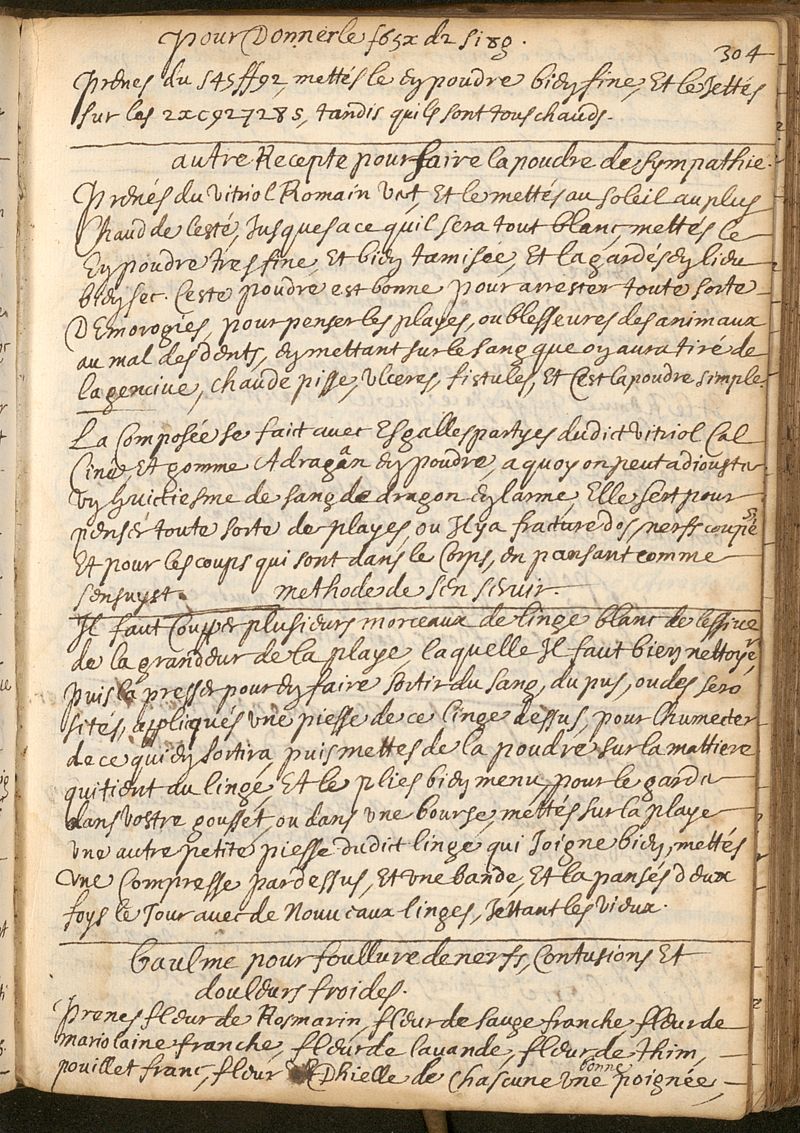 pour Donner le f65x d2 si8g.
304
Prenes du s45ff92, mettés le en poudre bien fine, Et le Jettés
sur les 2xc92728s, tandis quils sont tous chauds.
autre Recepte pour faire la poudre de sympathie.
Prenés du vitriol Romain vet, Et le mettés au soleil au plus
Chaud de lesté, Jusques a ce quil sera tout blanc, mettés le
En poudre tres fine, Et bien tamisée, Et la gardés en lieu
bien sec. Ceste poudre est bonne pour arrester toute sorte
DEmorogies, pour penser les playes, ou blesseures des animaux
au mal des dents, en mettant sur le sang que on aura tiré de
la gencive, chaude pisse, vlceres, fistules, Et Cest la poudre simple.
La Composée se fait avec Esgalles partyes dudict vitriol Cal
Ciné, Et gomme Adragan en poudre, a quoy on peut adiouster
vn huictiesme de sang de dragon en larme, Elle sert pour
penser toute sorte de playes, ou Il y a fracture dos, nerff coupés
Et pour les coups qui sont dans le Corps, en pansant comme
sensuyst. methode de sen servir.
Il faut Coupper plusieurs morceaux de linge blanc de lessive
de la grandeur de la playe, laquelle Il faut bien nettoyer,
puis la presser pour en faire sortir du sang, du pus, ou des sero
sités, appliqués vne piesse de ce linge dessus, pour lhumecter
de ce qui en sortira, puis mettes de la poudre sur la mattiere
qui tient au linge, Et le plies bien menu, pour le garder
dans vostre gousset, ou dans vne bourse, mettés sur la playe
vne autre petite piesse dudict linge qui Joigne bien, mettés
vne Compresse par dessus, Et vne bande, Et la pansés deux
foys le Jour avec de Nouveaux linges, Jettant les vieux.
baulme pour foullure de nerfs, Contusions Et
douleurs froides.
Prenes fleur de Rosmarin, fleur de sauge franche, fleur de
mariolaine franche, fleur de lavande, fleur de thim,
pouillet franc, fleur Dhielle de Chascune vne bonne poignée,